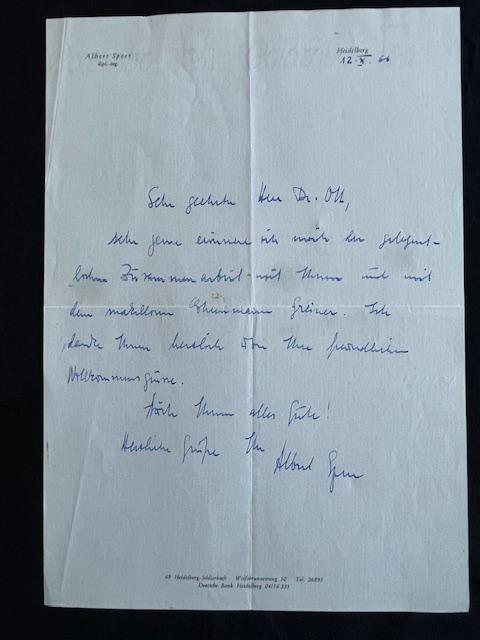 Albert Speer
dipl.-ing.
Heidelberg
12. X. 66
Sehr geehrter Herr Dr. Ott,
sehr gerne erinnere ich mich der gelegent-
lichen Zusammenarbeit mit Ihnen und mit
dem Ehrenmann Greiner. Ich
danke Ihnen herzlich von Ihre freundlichen
Willkommensgrüsse.
Ihnen alles Gute!
Herzliche Grüße Ihr
Albert Speer
69 Heidelberg-Schlierbach Wolfsbrunnenweg 50 Tel. 24895
Deutsche Bank Heidelberg 04/14 331